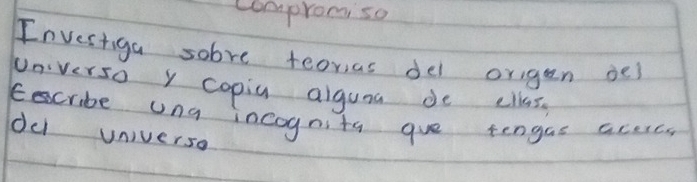 Compromiso
Investiga sobre teorias del origen del
universo y copia alguna de ellas.
Escribe una incognita que tengas acerca
del universo